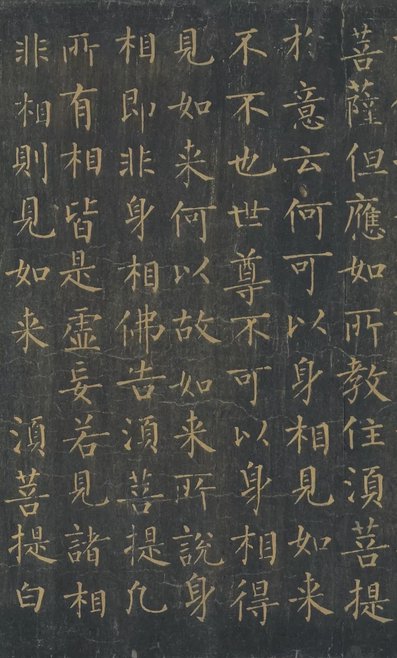 菩薩但應如所教住須菩提
於意云何可以身相見如来
不不也世尊不可以身相得
見如来何以故如来所說身
相即非身相佛告須菩提凡
所有相皆是虛妄若見諸相
非相則見如来 須菩提白